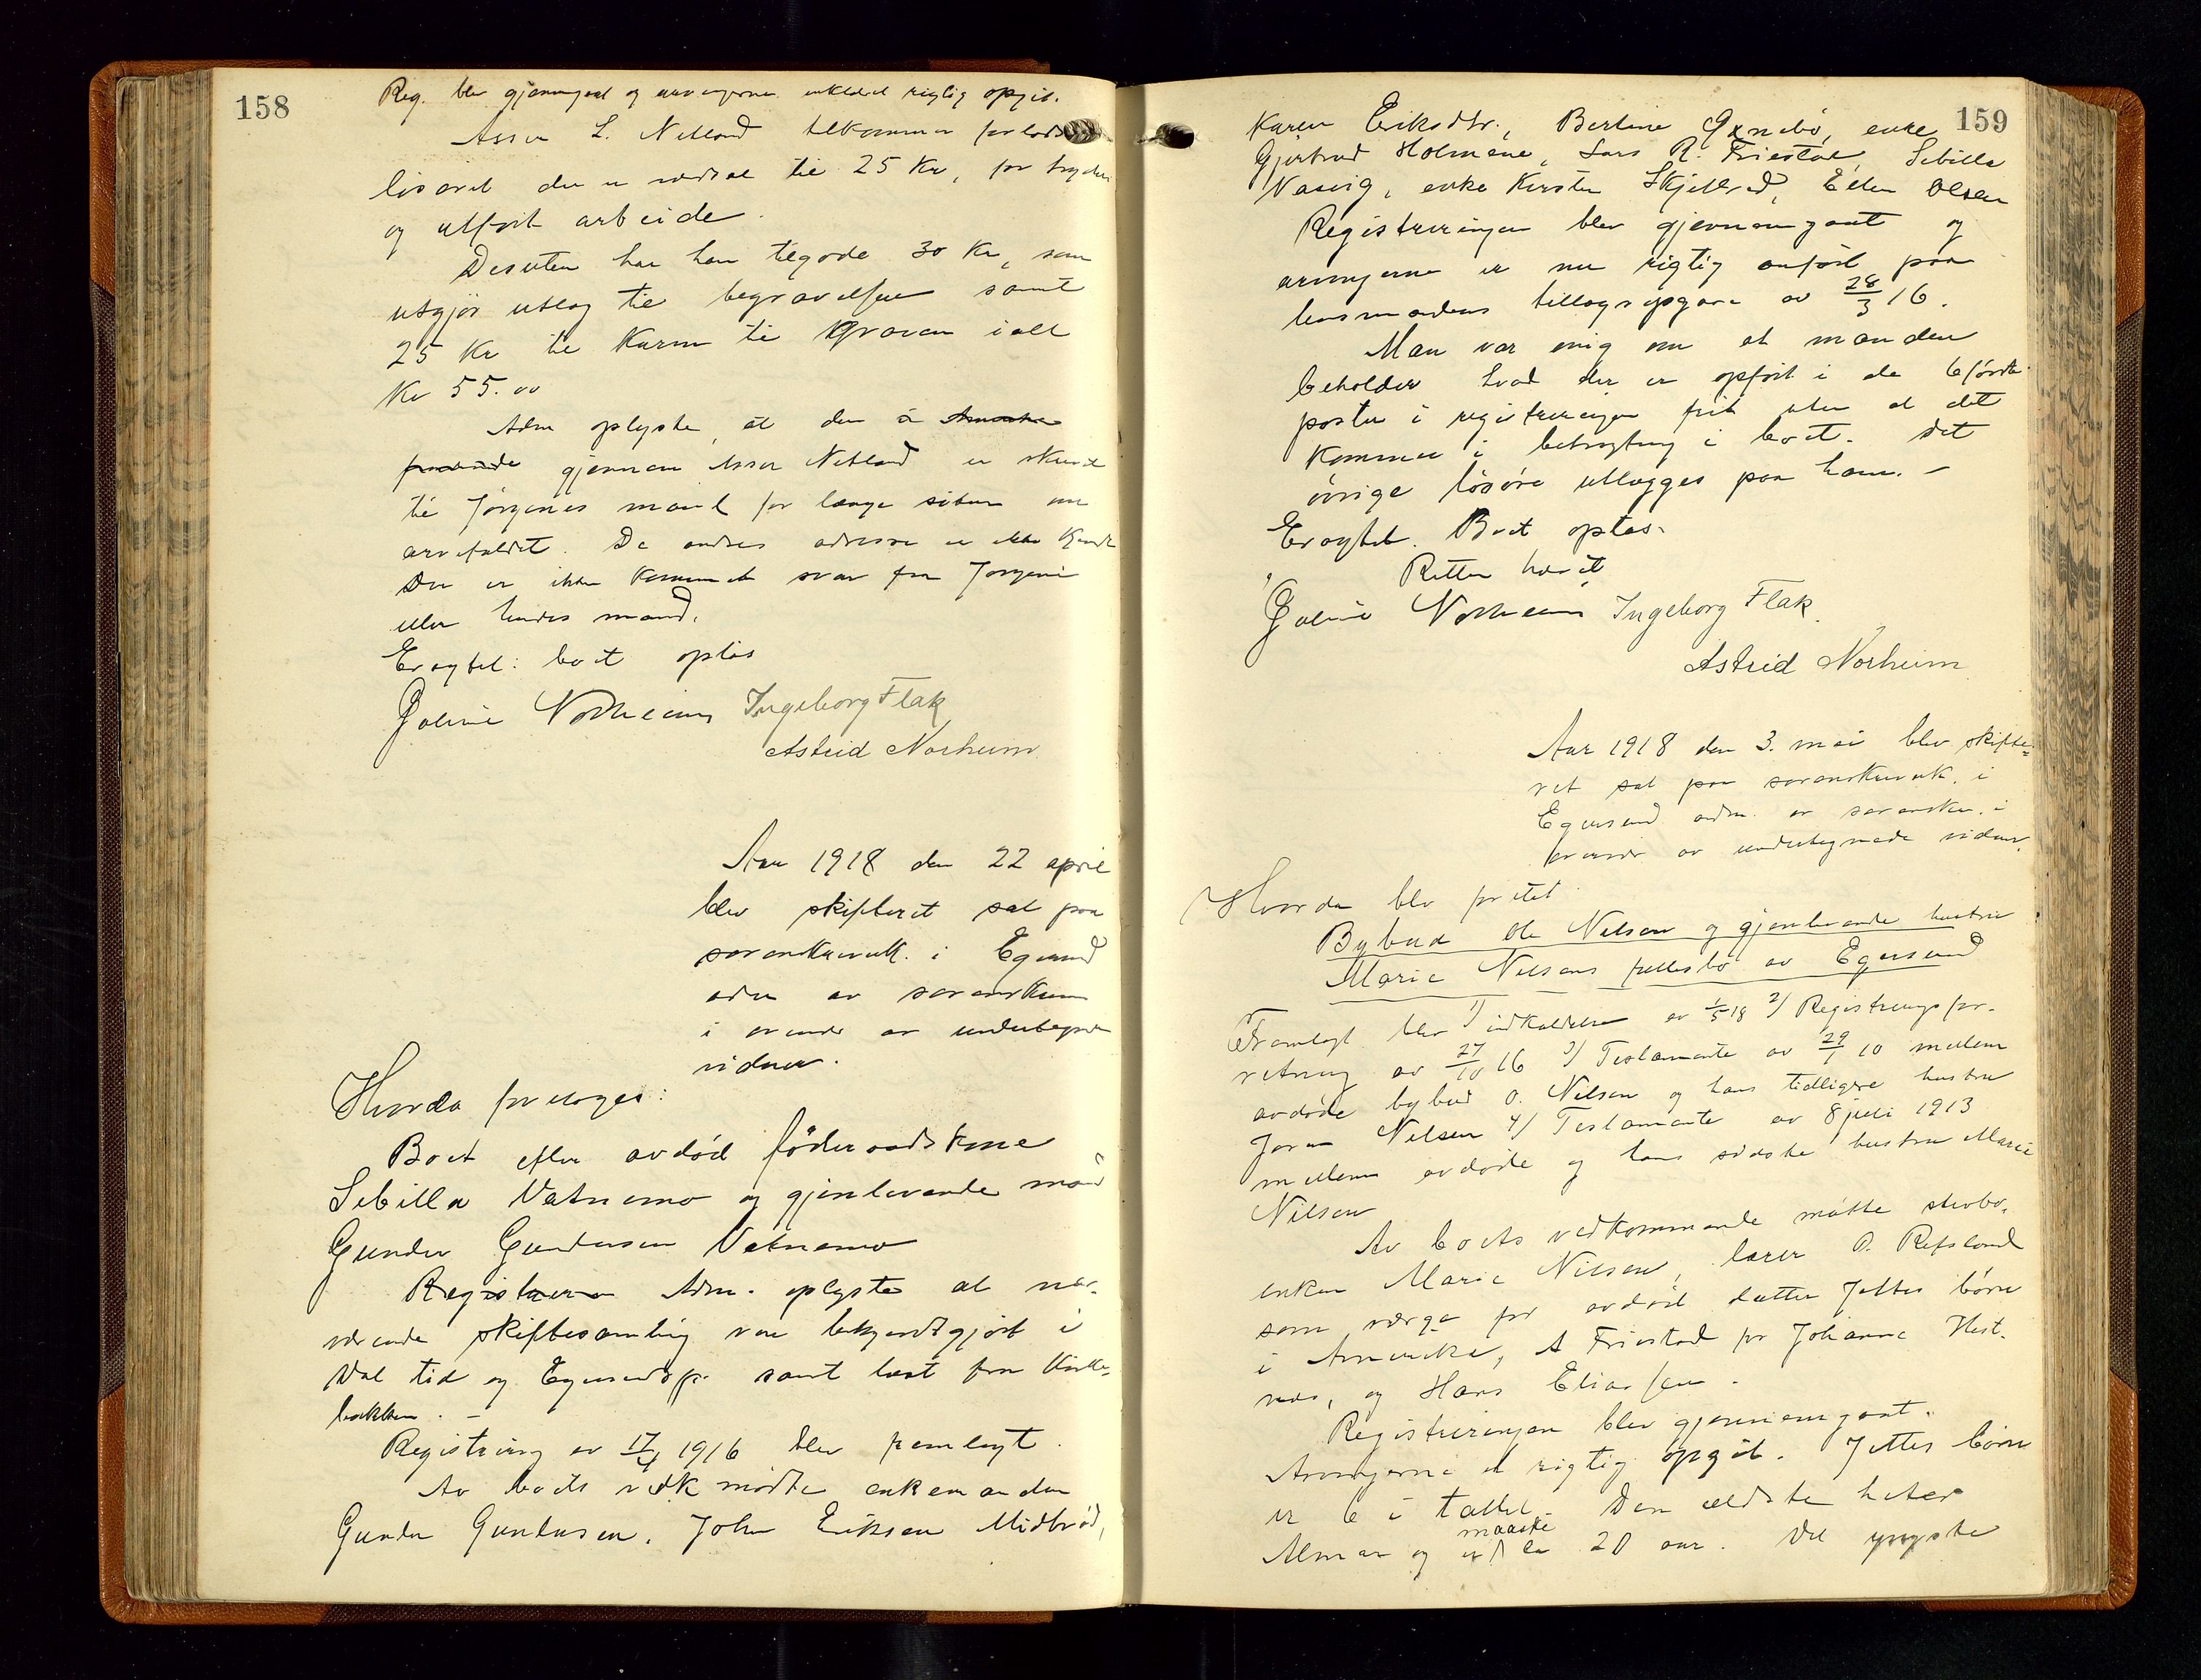 158
Reg. blev gjennemgaat og arvingerne erklært rigtig opgit.
Asser L. Netland tilkommer for
lisøret der er til 25 Kr, for
og utført arbeide.
Desuten har han tilgode 30 Kr, som
utgjør utlæg til begravelsen samt
25 Kr til Karm til Graven ialt
Kr 55.00
Adm oplyste, at der
gjennem Asser Netland er skrevet
til Jørgines mand for længe siden om
arvefaldet. De andres adresse er ikke kjendt
Der er ikke kommet svar fra Jørgine
eller hendes mand.
Eragtet: boet opløs
Goline Norheim Ingeborg Flak
Astrid Norheim.
Aar 1918 den 22 april
blev skifteret sat paa
sorenskriverk. i Egersund
adm av sorenskriveren
i overvær av undertegnede
vidner.
Hvorda foretoges:
Boet efter avdød föderaadskone
Sibilla Vatnemo og gjenlevende mand
Gunder Gundersen Vatnemo
Registrer Adm. oplyste at nær-
værende skiftesamling var bekjendtgjort i
Dal tid og Egersundsp. samt læst fra Kirke-
bakken. -
Registrering av 17/4 1916 blev fremlagt.
Av boets vedk mødte enkemanden
Gunder Gundersen, John Eriksen Midbrød,
159
Karen Eriksdtr., Bertine Gxnebø, enke
Gjertrud Holmene, Lars R. Friestad, Sibilla
Nasvig, enke Kirsten Skjelbred, Ellen Olsen
Registreringen blev gjennemgaat og
arvingerne er nu rigtig anført paa
lensmandens tillægsopgave av 28/3 16.
Man var enig om at manden
beholder hvad der er opført i de 6 første
poster i registreringen frit uten at det
kommer i betragtning i boet. Det
øvrige løsøre utlægges paa ham. -
Eragtet. Boet optas.
Retten hævet
Goline Norheim Ingeborg Flak.
Astrid Norheim
Aar 1918 den 3. mai blev skifte=
ret sat paa sorenskriverk. i
Egersund adm. av sorenskr. i
overvær av undertegnede vidner.
Hvorda blev foretet
Bybud Ole Nilsen og gjenlevende hustru
Marie Nilsens fellesbo av Egersund
Fremlagt blev 1) indkaldelse av 1/5 18 2) Registreringsfor-
retning av 27/10 16 3) Testamente av 29/1 10 mellem
avdøde bybud O. Nilsen og hans tidligere hustru
Joren Nilsen 4) Testamente av 8 juli 1913
mellem avdøde og hans sidste hustru Marie
Nilsen
Av boets vedkommende møtte sterbo-
enken Marie Nilsen, lærer O. Refsland
som værge for avdød datter Jettes børn
i Amerika, A Friestad for Johanne Hest-
nes, og Hans Eliassen.
Registreringen blev gjennemgaat.
Arvingerne et rigtig opgit. Jettes børn
er 6 i tallet. Den ældste heter
Almar og er maaske 20 aar. Det yngste